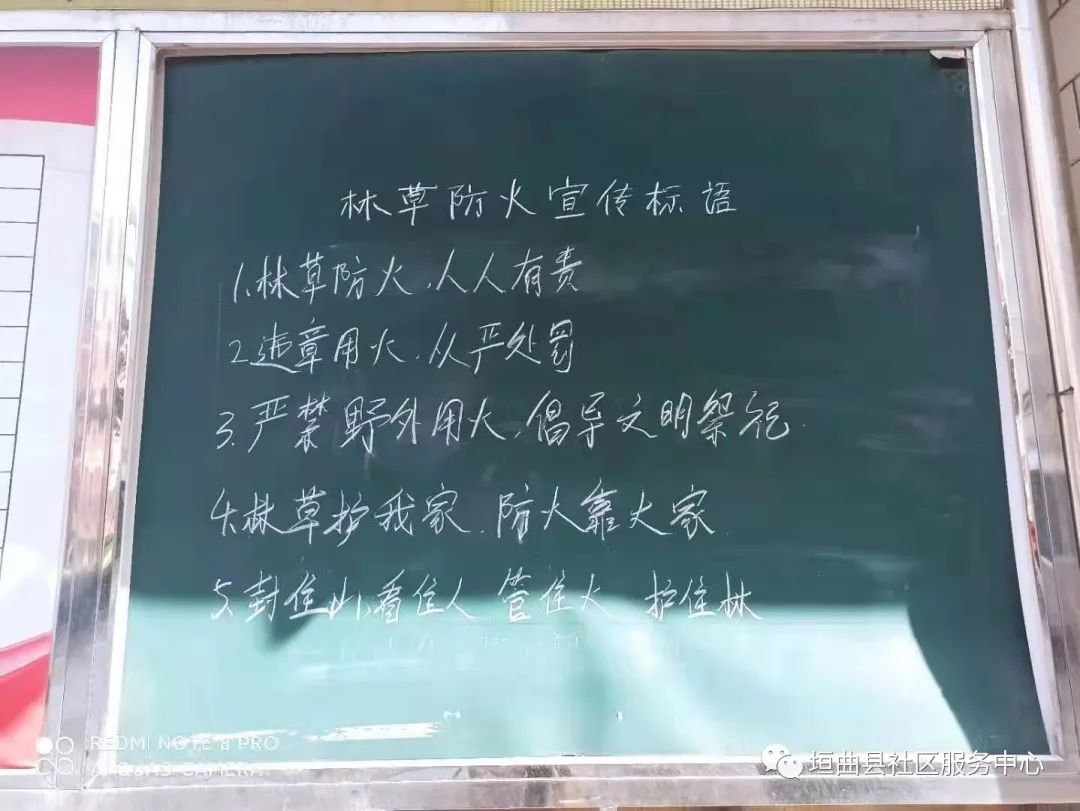 林草防火宣传标语
1.林草防火.人人有责
2.违章用火.从严处罚
3.严禁野外用火.倡导文明祭祀.
4.林草护我家.防火靠大家
5.封住山,看住人 管住火 护住林
REDMI NOTE 8 PRO
AI QUAD CAMERA
垣曲县社区服务中心